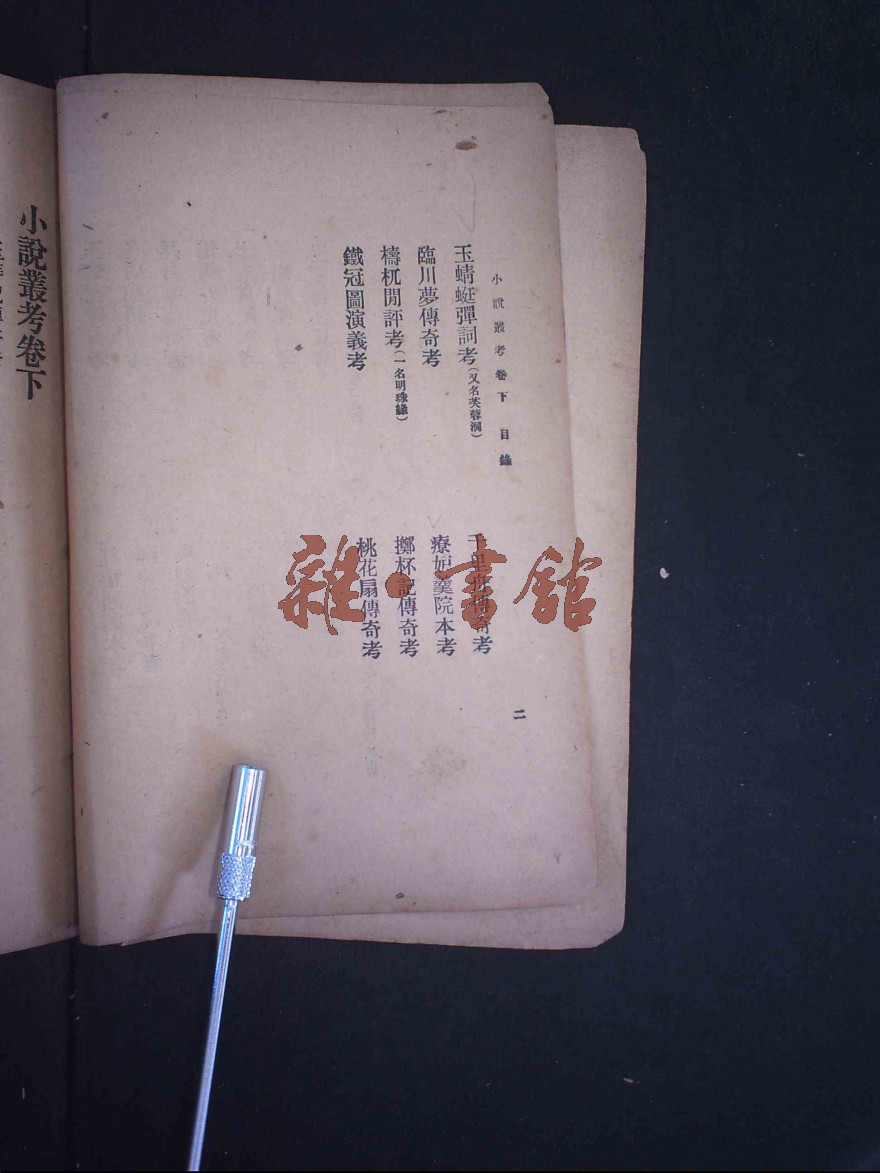 小說叢考卷下 目錄
玉蜻蜓彈詞考(又名芙蓉洞)
千里舟傳奇考
臨川夢傳奇考
療妒羹院本考
檮杌閒評考(一名明珠緣)
擲杯記傳奇考
鐵冠圖演義考
桃花扇傳奇考
二
小說叢考卷下
雜·書館